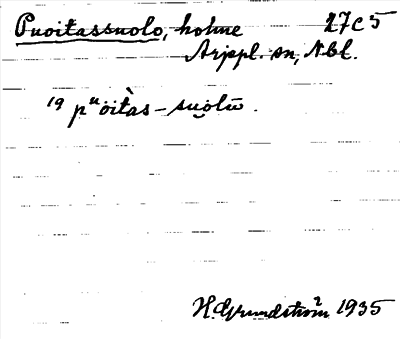 Puoitassuolo, holme 27C5
Arjepl. sn, Nbl.
19 pᵘöità̀s-su̮olū.
H. Grundström 1935